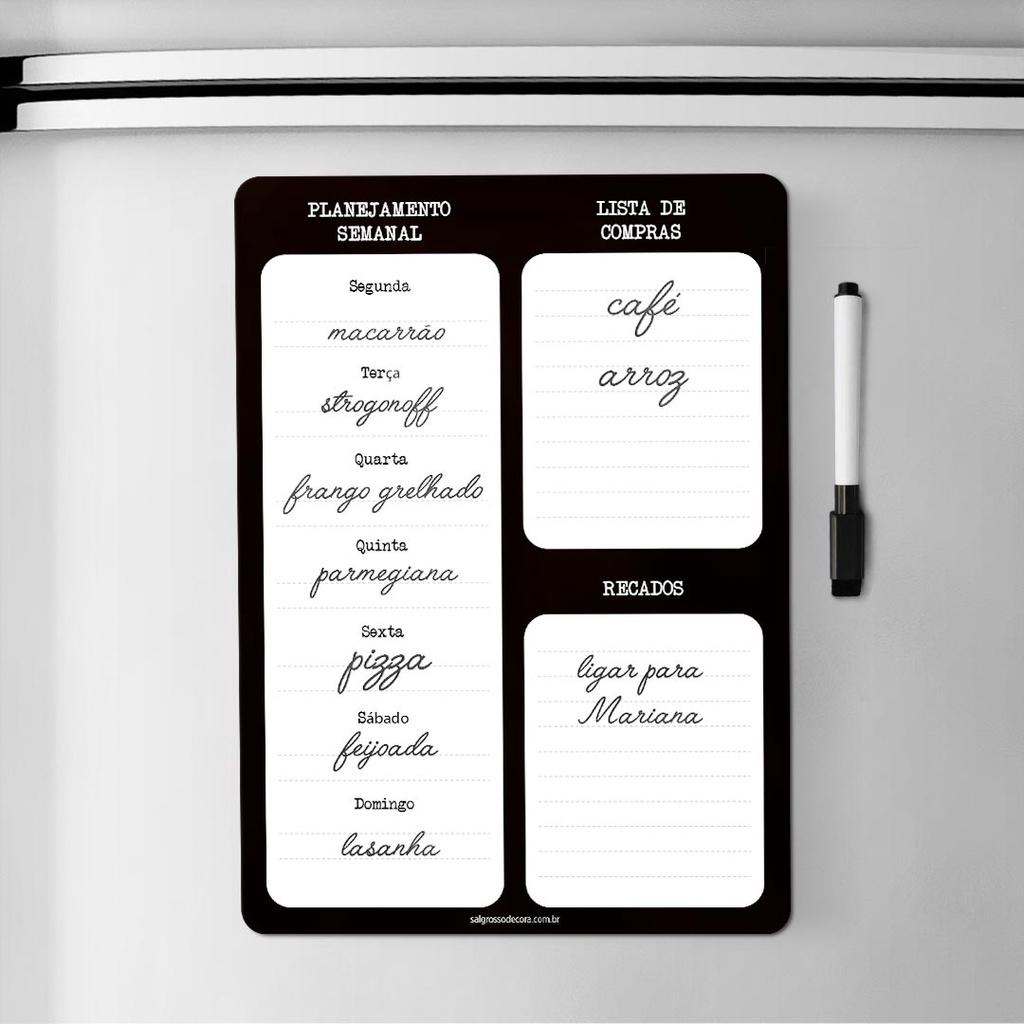 PLANEJAMENTO
SEMANAL
Segunda
macarrão
Terça
strogonoff
Quarta
frango grelhado
Quinta
parmegiana
Sexta
pizza
Sábado
feijoada
Domingo
lasanha
LISTA DE
COMPRAS
café
arroz
RECADOS
ligar para
Mariana
salgrossodecora.com.br